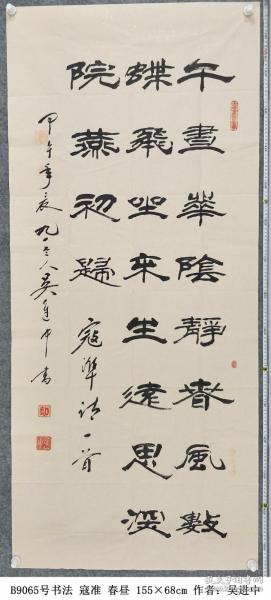 午晝華陰靜春風數
蝶飛坐來生遠思深
院燕初歸
寇準詩一首
甲午年夏九老人吴進中書
B9065号书法 寇准 春昼 155×68cm 作者：吴进中